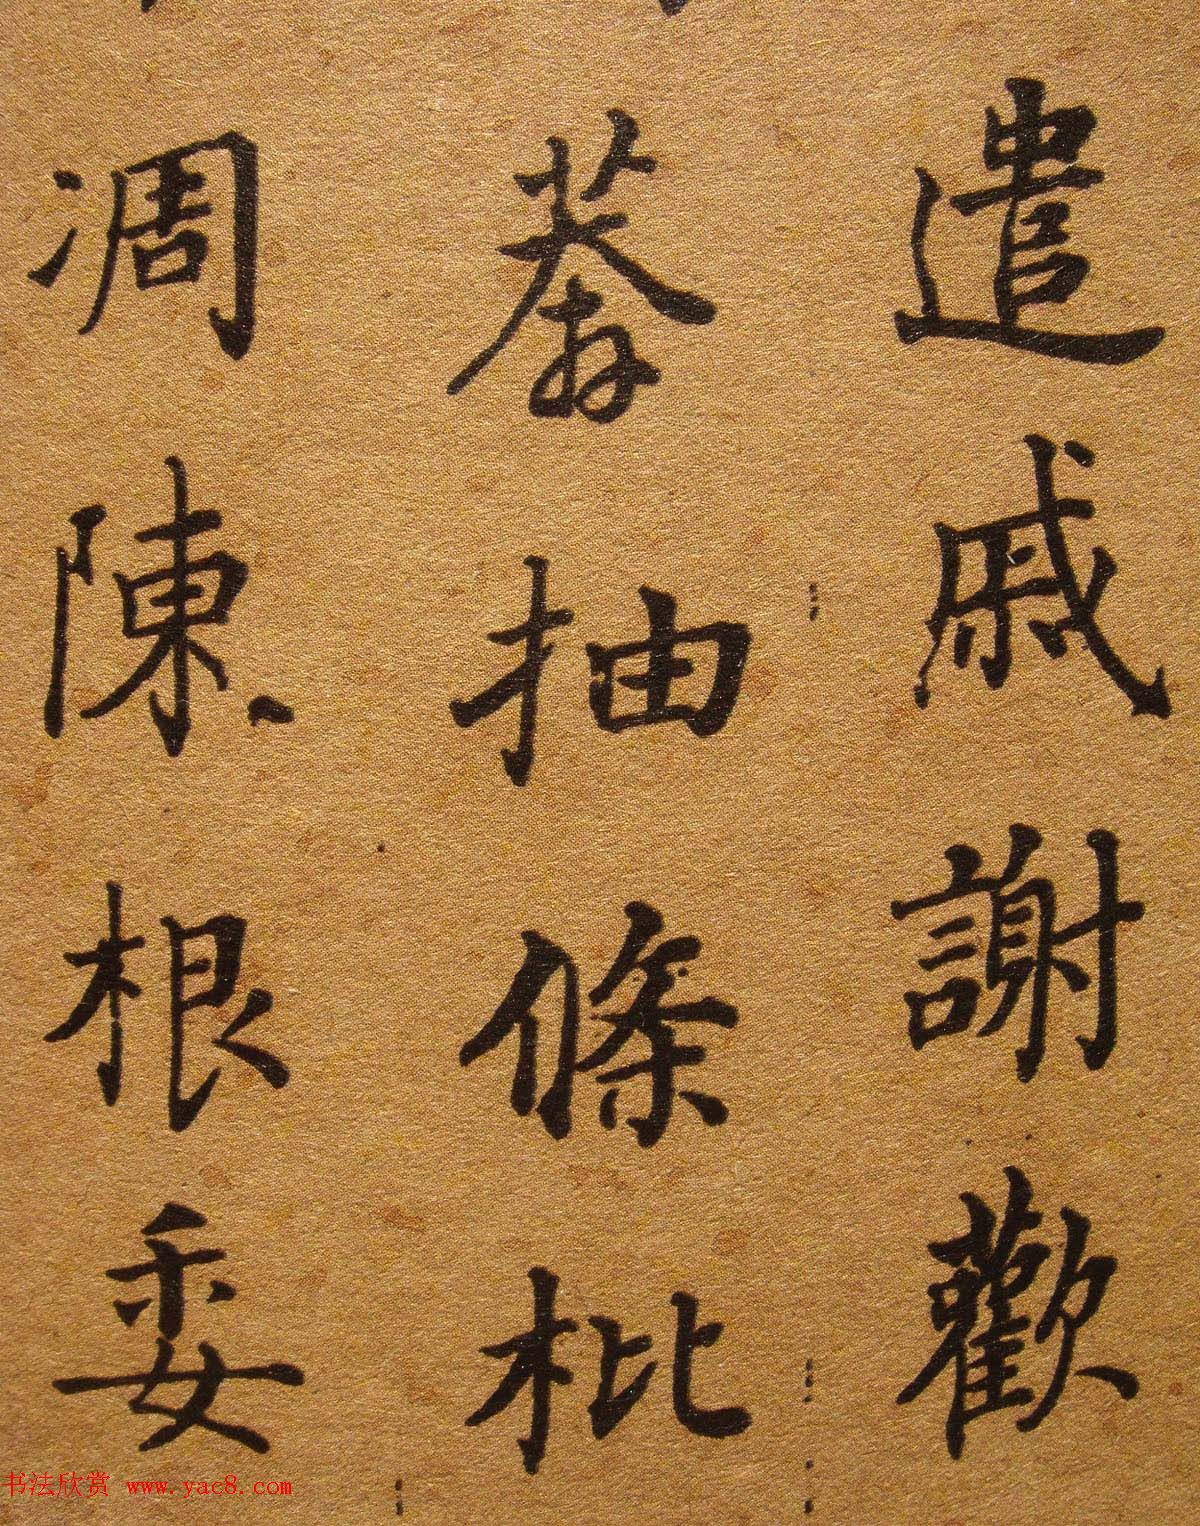 遣戚謝歡
莽抽條枇
凋陳根委
书法欣赏 www.yac8.com